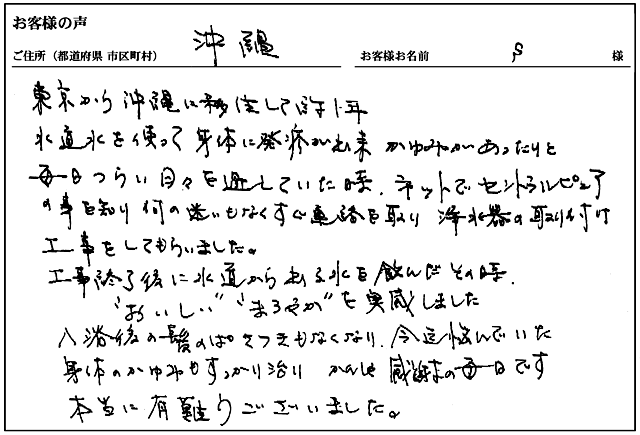 お客様の声
ご住所（都道府県 市区町村） 沖縄 お客様お名前 S 様
東京から沖縄に移住して約1年
水道水を使って身体に発疹が出来 かゆみがあったりと
毎日つらい日々を過していた時、ネットでセントラルピュア
の事を知り何の迷いもなくすぐ連絡を取り 浄水器の取り付け
工事をしてもらいました。
工事終了後に水道から出る水を飲んだその時、
"おいしい" "まろやか"を実感しました
入浴後の髪のぱさつきもなくなり、今迄悩んでいた
身体のかゆみもすっかり治り 感謝の毎日です
本当に有難うございました。